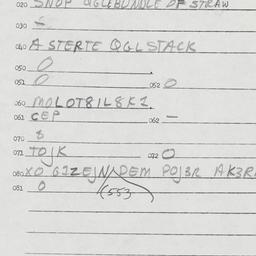 020 SNOP QGLEBUNDLE OF STRAW
030
040 A STERTE QGLSTACK
050 0
051 0 052 0
060 MOLOT8IL8K1
061 CEP 062 —
070 8
071 TOJK 072 0
080 XO GIZEJN DEM POJ3R AK3R
081 0 (553